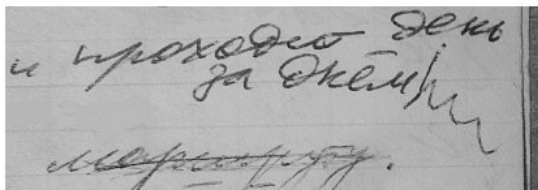 и проходит день
за днём,
маршруту.